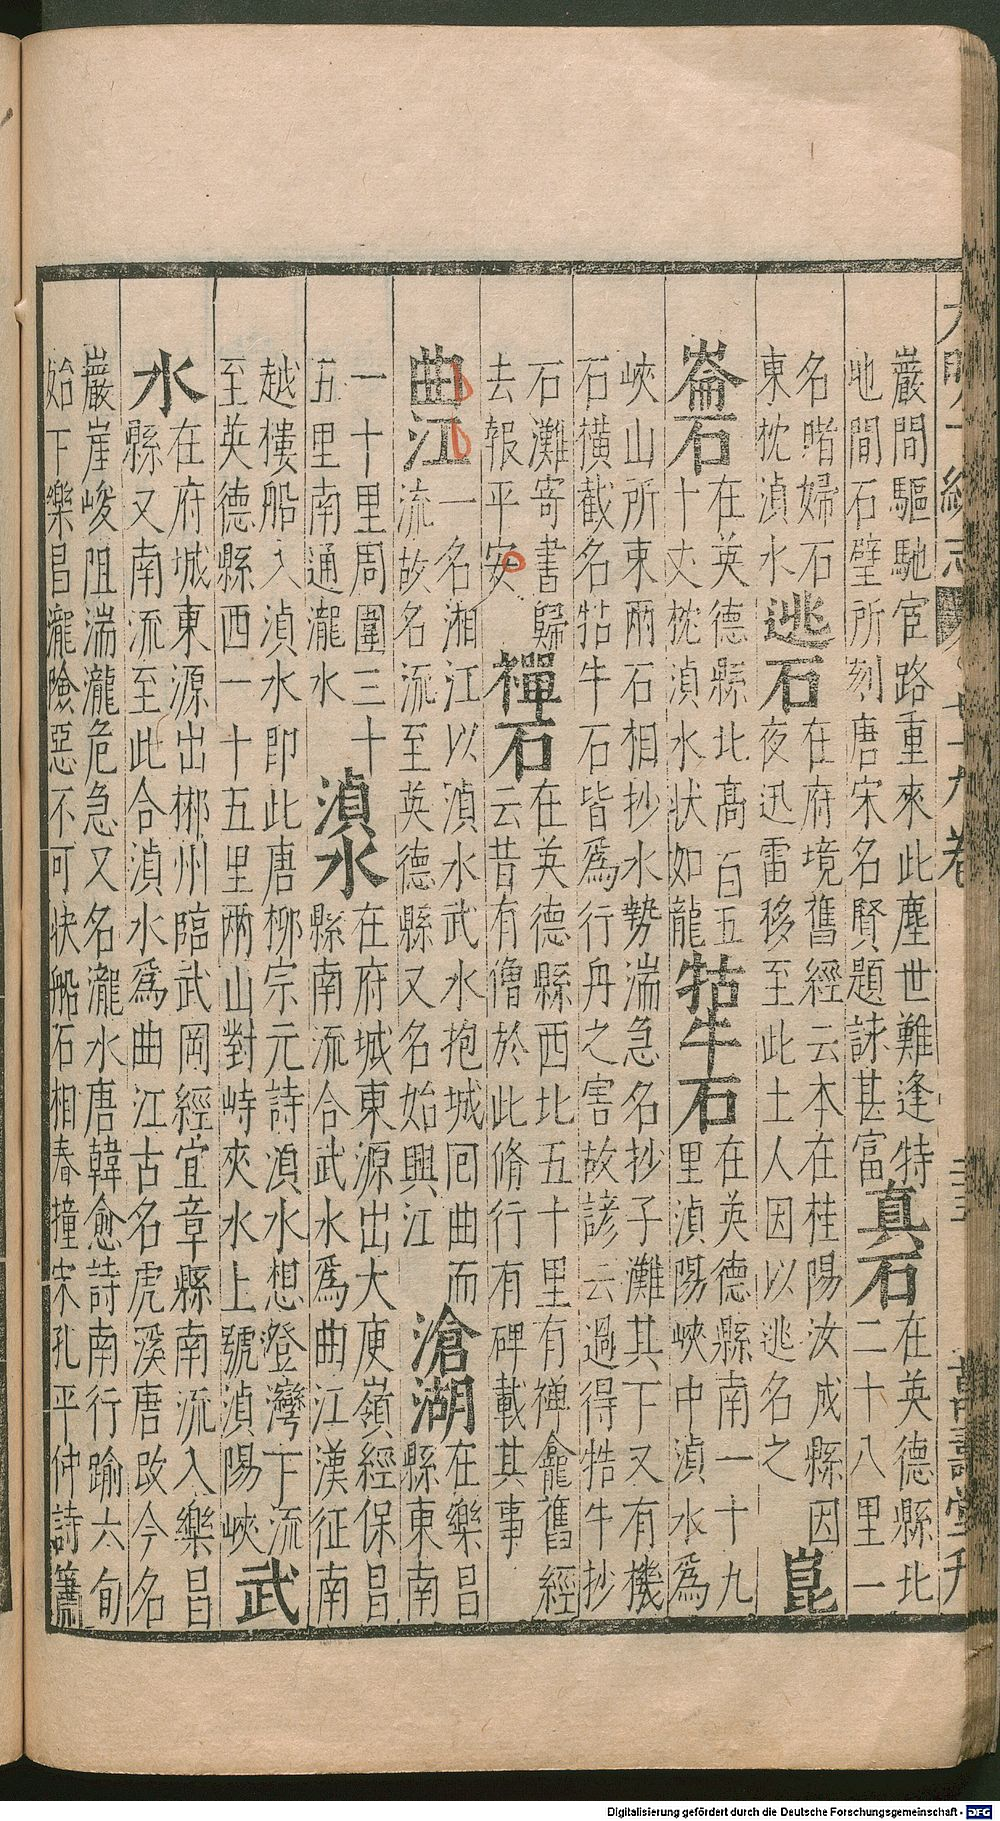 大明一統志 七十九卷 萬壽堂刊
巖間驅馳宦路重來此塵世難逢特
地間石壁所刻唐宋名賢題詠甚富
真石
在英德縣北
二十八里一
名睹婦石
東枕湞水
逃石
在府境舊經云本在桂陽汝成縣因
夜迅雷移至此土人因以逃名之
崑
崙石
在英德縣北高百五
十丈枕湞水状如龍
牯牛石
在英德縣南一十九
里湞陽峽中湞水為
峽山所束兩石相抄水勢湍急名抄子灘其下又有機
石橫截名牯牛石皆爲行舟之害故諺云過得牯牛抄
石灘寄書歸
去報平安
禪石
在英德縣西北五十里有禅龕舊經
云昔有僧於此脩行有碑載其事
曲江
一名湘江以湞水武水抱城囘曲而
流故名流至英德縣又名始興江
滄湖
在樂昌
縣東南
一十里周圍三十
五里南通瀧水
湞水
在府城東源出大庾嶺經保昌
縣南流合武水爲曲江漢征南
越樓船入湞水即此唐柳宗元詩湞水想澄灣下流
至英德縣西一十五里兩山對峙夾水上號湞陽峽
武
水
在府城東源出郴州臨武岡經宜章縣南流入樂昌
縣又南流至此合湞水爲曲江古名虎溪唐改今名
巖崖峻阻湍瀧危急又名瀧水唐韓愈詩南行踰六旬
始下樂昌瀧險惡不可状船石相舂撞宋孔平仲詩
Digitalisierung gefördert durch die Deutsche Forschungsgemeinschaft - DFG